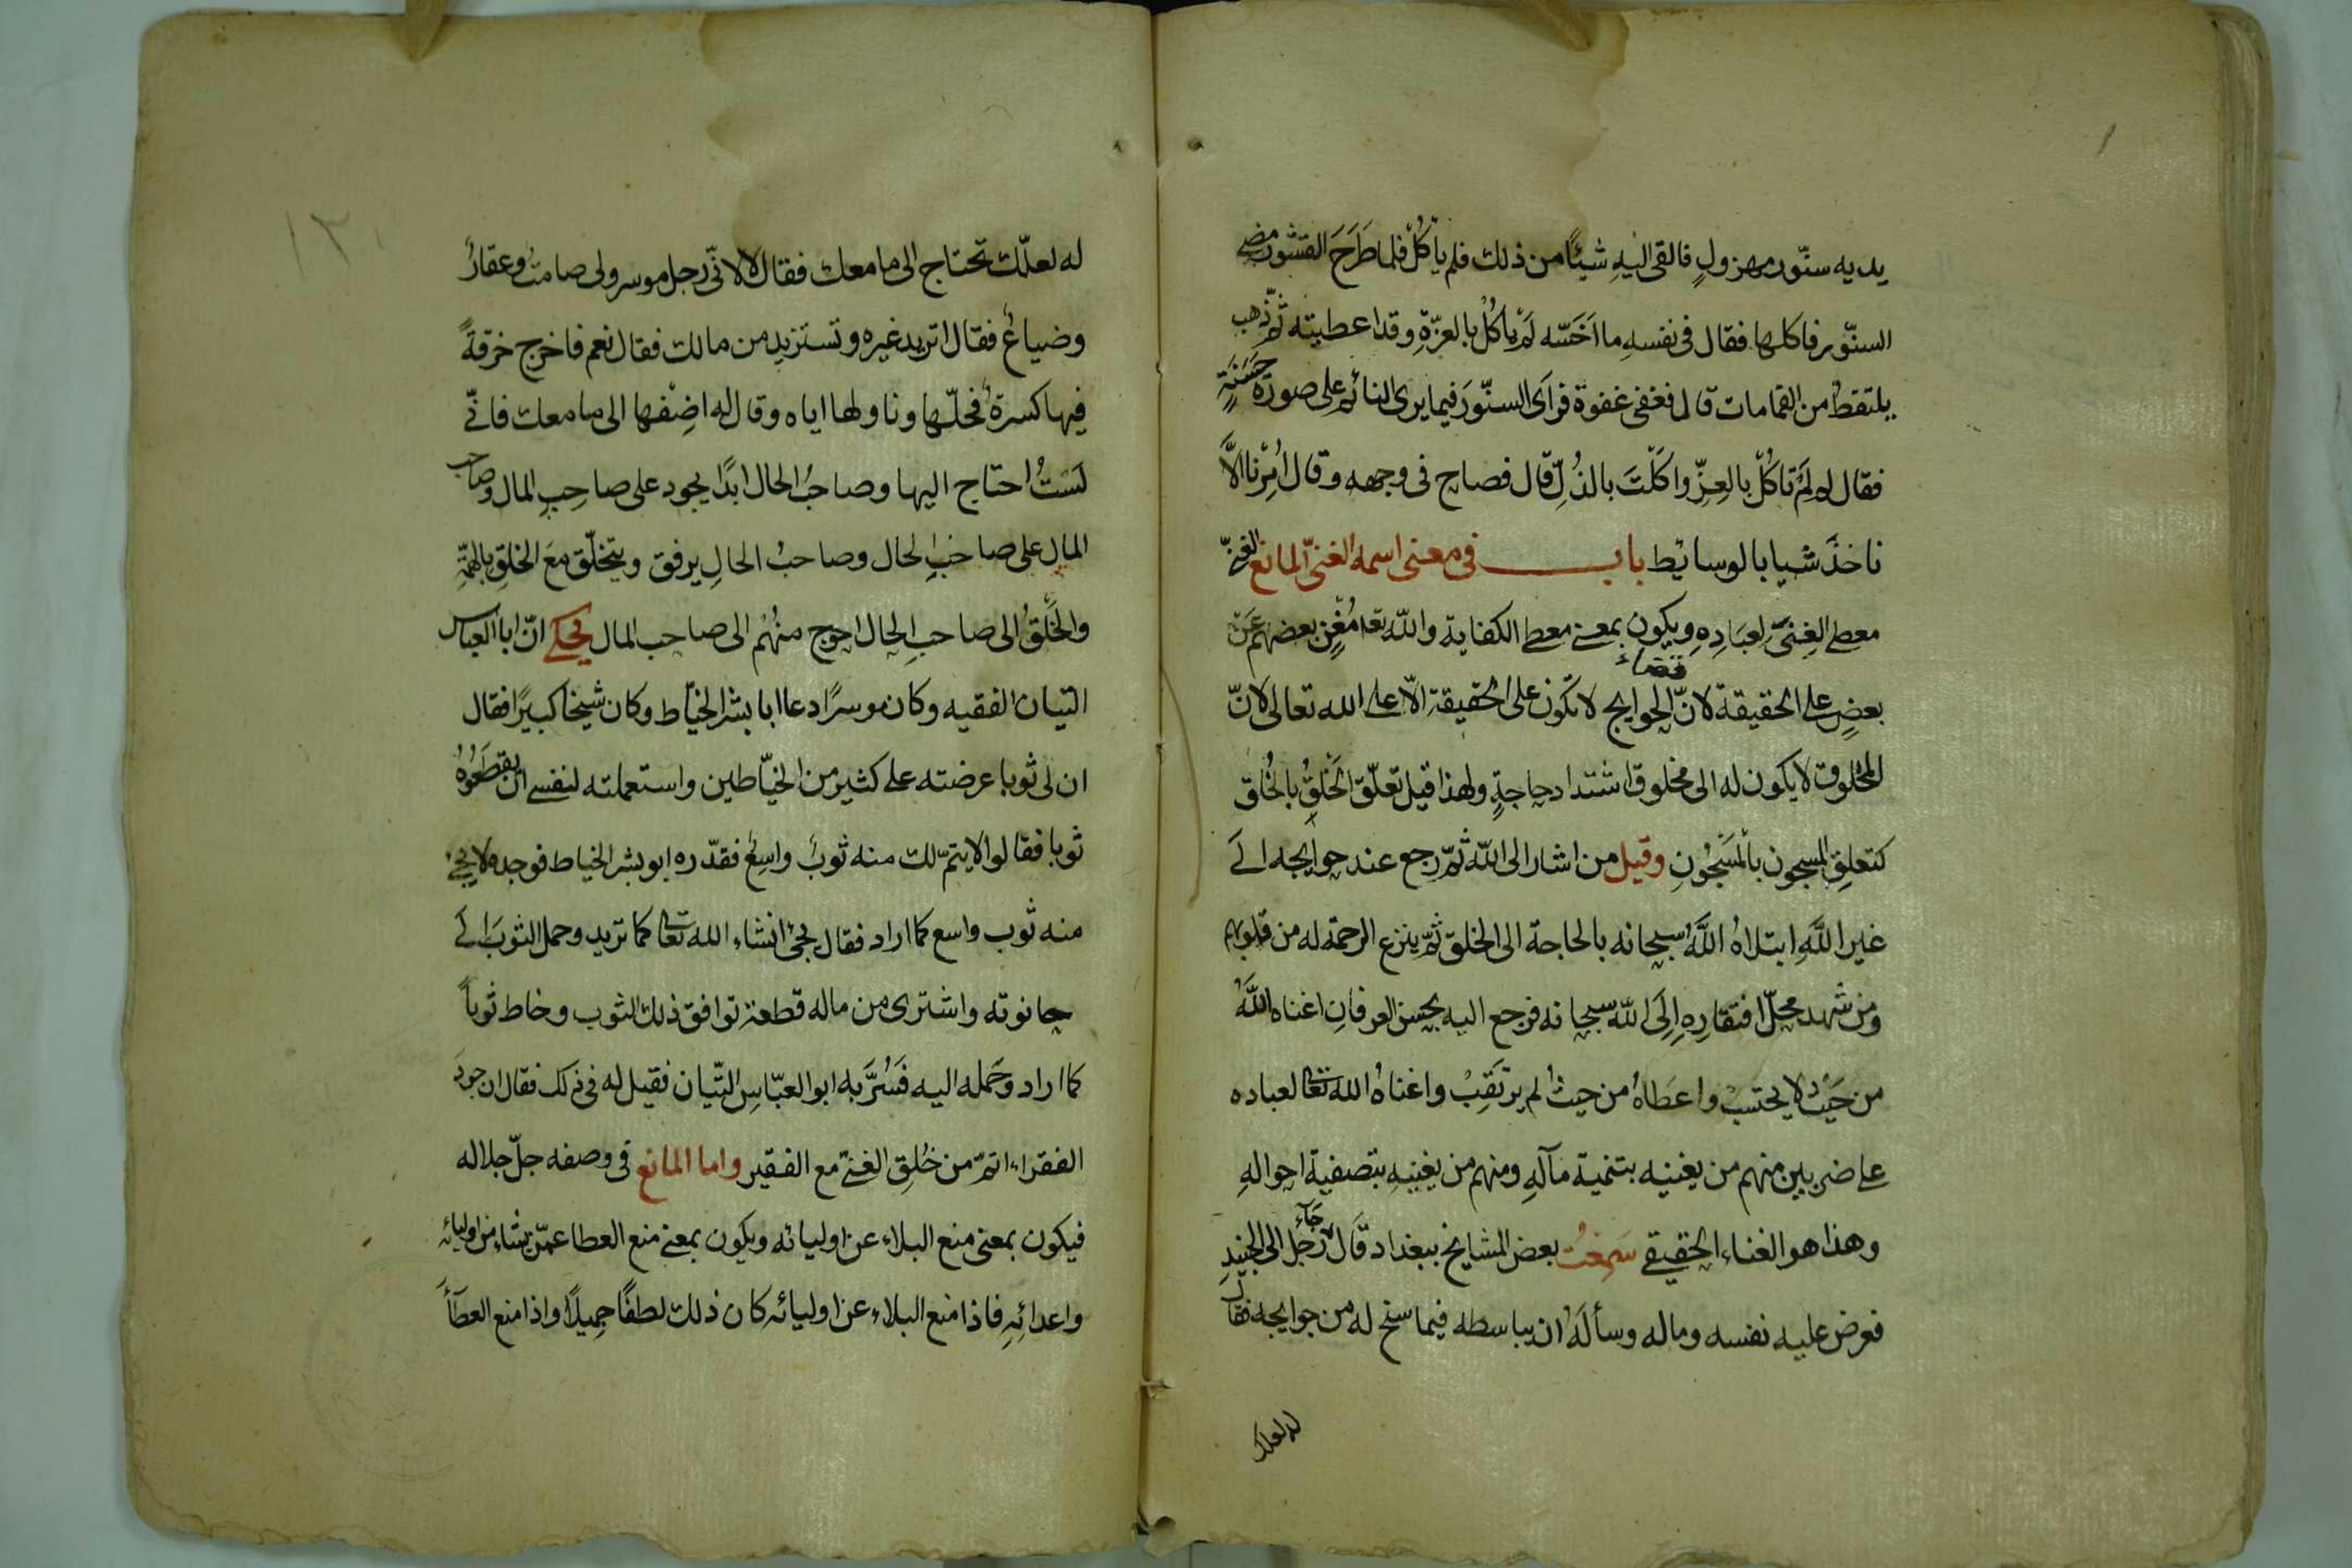 يديه سنّور مهزولٍ فالقى اليهِ شيئًا من ذلك فلم يأكُلْ فلما طَرَحَ القشور مضى
السنّور فاكلها فقال فى نفسهِ ما اَخَسّه لَمْ يأكُلْ بالعزّةِ وقد اعطيته ثمّ ذهب
يلتقطُ من القمامات قال فغفى غفوة فرآى السنّورَ فيما يرى النائم على صورة حَسَنَةٍ
فقال له لَمْ تاكُلْ بالعِزِّ واكَلْتَ بالذُلِّ قال فصاح فى وجهه وقال اُمِرْنا الَّا
ناخذَ شيا بالوسائط باب فى معنى اسمه الغنىّ المانع الغنىّ
معطى الغِنىَ لعبَادِهِ ويكون بمعنى معطى الكفاية والله تعا مُغْنٍ بعضهم عَنْ
بعضٍ على الحقيقة لانّ الحوايج لا تكون على الحقيقة الّا على الله تعالى لانّ
قضاء
المخلوق لا يكون له الى مخلوق اشتداد حاجةٍ ولهذا قيل تعلّق الخَلْقِ بالخَلق
كتعلق المسجون بالمَسْجُونِ وقيل من اشار الى الله ثمّ رجع عند حوايجه الَى
غير اللَّهِ ابتلاهُ اللَّهُ سبحانه بالحاجة الى الخلق ثمّ ينزع الرحمة له من قلوبهم
ومن شهد محلّ افتقارِهِ اِلَى اللّه سبحانه فرجع اليه بحسن العرفانِ اغناه اللَّهُ
من حَيْثُ لا يحتسبْ واعطاهُ من حيثُ لم يرتَقِبْ واغناهُ الله تعا لعباده
على ضربين منهم من يغنيه بتنمية مآلهِ ومنهم من يغنيهِ بتصفية احوالهِ
وهذا هو الغناء الحقيقى سَمِعْتُ بعض المشايخ ببغداد قَالَ جَاءَ رَجُل الى الجنيدِ
فعرض عليه نفسه وماله وسألَهُ ان يباسطه فيما سنح له من حوايجه فقال
له لعلك
١٢
له لعلّك تحتاج الى ما معك فقال لا لانّى رجل موسر ولى صامتٌ وعقارٌ
وضياعٌ فقال اتريد غيره وتستزيد من مالك فقال نعم فاخرج خرقةً
فيها كسرةٌ فحلّها وناولها اياه وقال له اضِفْها الى ما معك فانّى
لَسْتُ احتاج اليها وصاحبُ الحال ابدًا يجود على صاحِبِ المال وصاحب
المال على صاحبِ الحال وصاحبُ الحالِ يرفق ويتخلّق معَ الخلقِ بالهمّةِ
والخَلْقُ الى صاحبِ الحال احوج منهُم الى صاحب المال يحكى انّ ابا العباس
التبان الفقيه وكان موسرًا دعا ابا بشر الخيّاط وكان شيخا كبيرًا فقال
ان لى ثوبا عرضته على كثير من الخيّاطين واستعملته لنفسى ان يقطَعُوهُ
ثوبا فقالوا لا يتمّ لك منه ثوبٌ واسِعٌ فقدّره ابو بشر الخياط فوجده لا يجئ
منه ثوب واسع كما اراد فقال يجئ انشاء الله تعا كما تريد وحمل الثوبَ الَى
حانوته واشترى من ماله قطعة توافق ذلك الثوب وخاط ثوباً
كما اراد وحَمله اليه فَسُرَّ به ابو العبّاس التبّان فقيل له فى ذلك فقال ان جودَ
الفقراء اتمّ من خُلقِ الغنىّ مع الفقير واما المانع فى وصفه جلّ جلاله
فيكون بمعنى منع البلاء عن اوليائه ويكون بمعنى منع العطا عمّن يشاء من اوليائه
واعدائِهِ فاذا منع البلاء عن اوليائه كان ذلك لطفًا جميلًا واذا منع العطآءَ